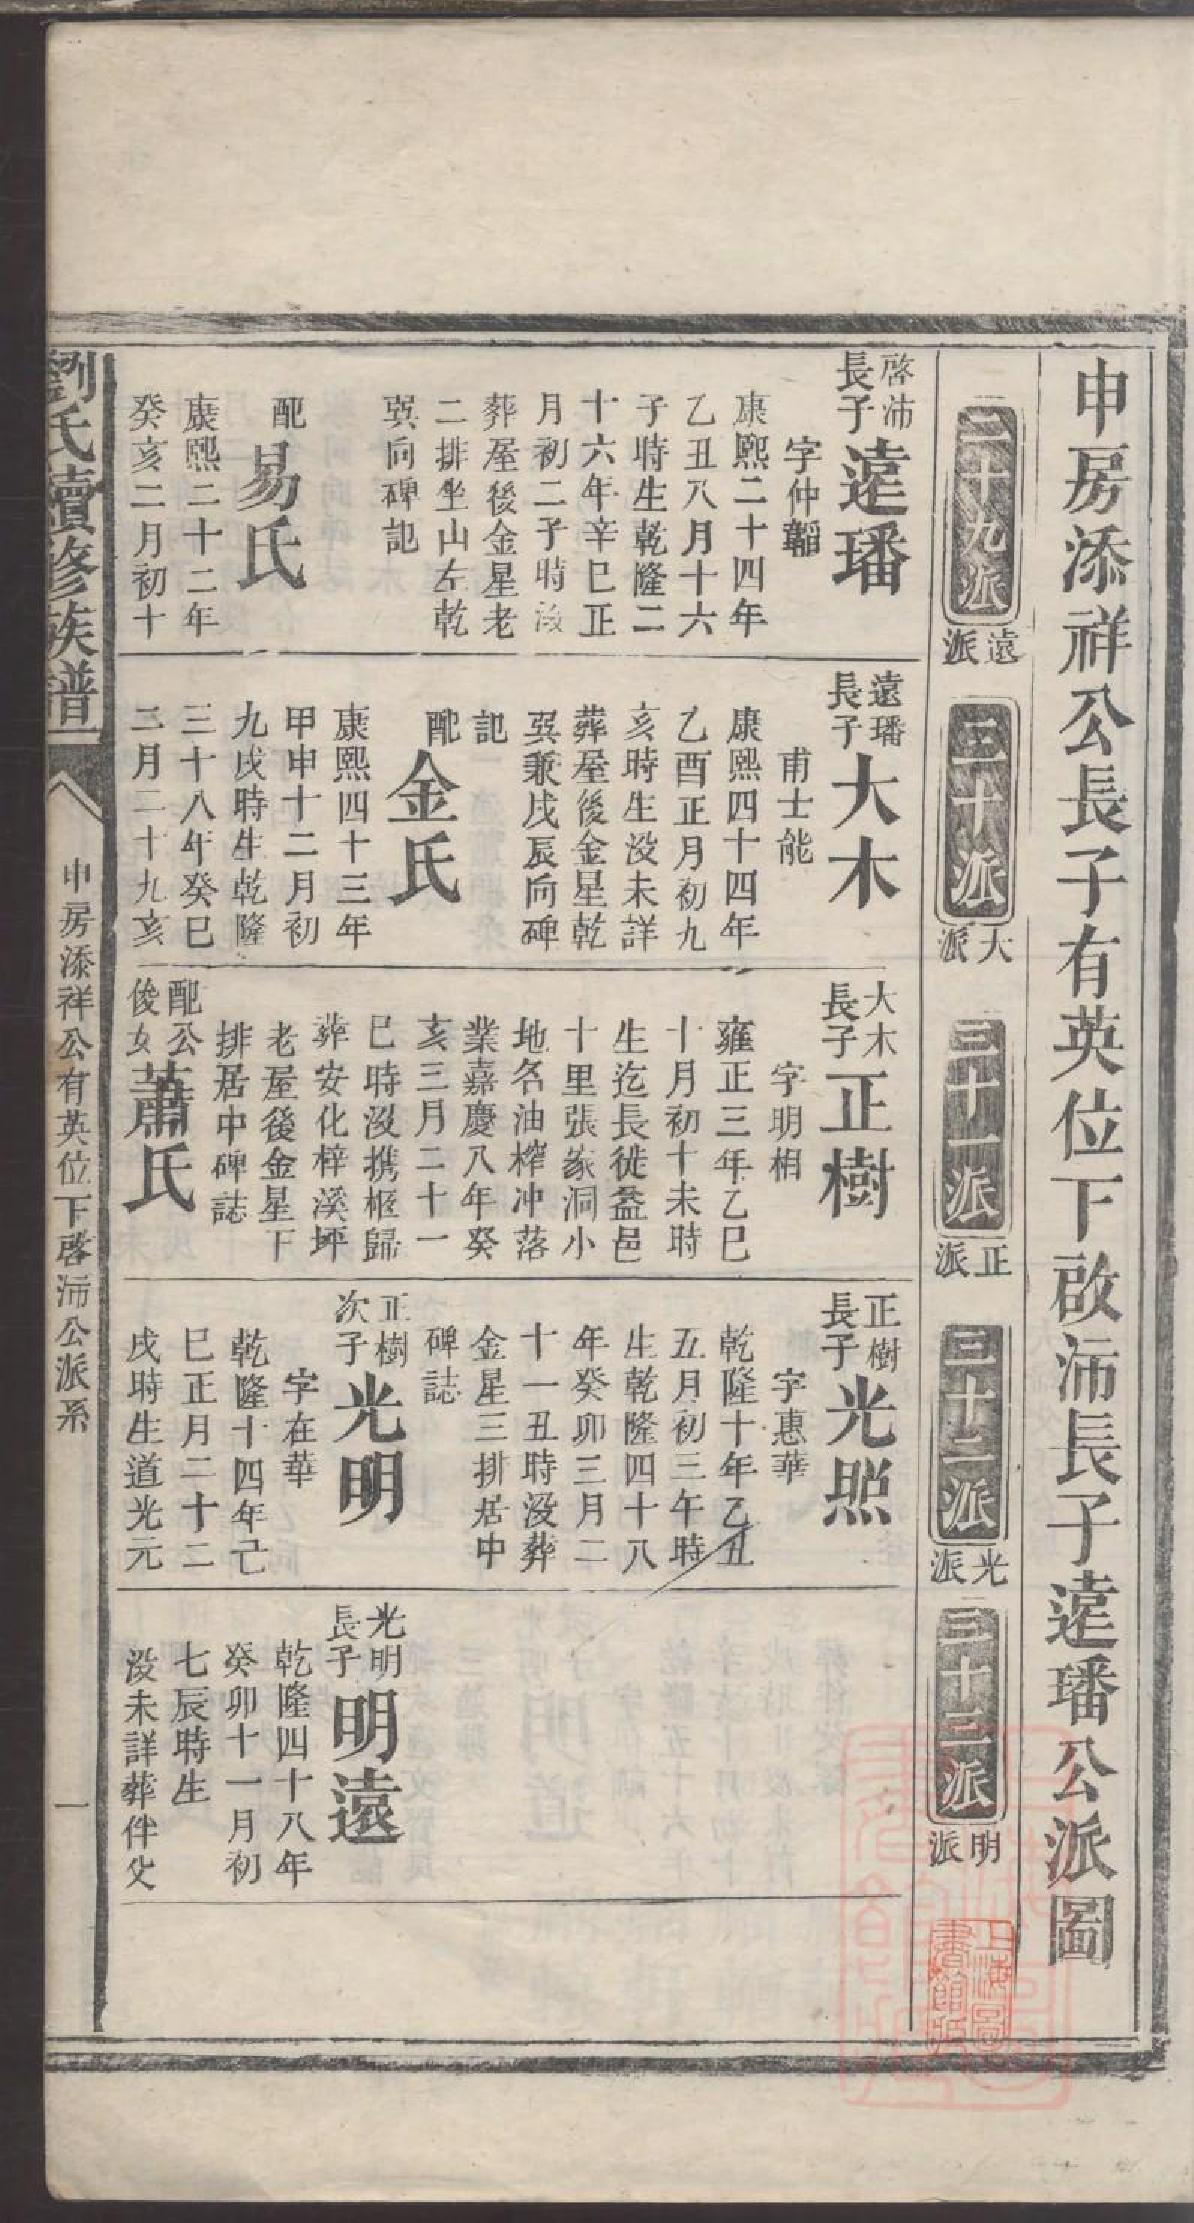 申房添祥公長子有英位下啟沛長子遠璠公派圖
二十九派
遠派
三十派
大派
三十一派
正派
三十二派
光派
三十三派
明派
啓沛
長子
遠璠
字仲韜
康熙二十四年
乙丑八月十六
子時生乾隆二
十六年辛巳正
月初二子時沒
葬屋後金星老
二排坐山左乾
巽向碑記
配
易氏
康熙二十二年
癸亥二月初十
遠璠
長子
大木
甫士能
康熙四十四年
乙酉正月初九
亥時生没未詳
葬屋後金星乾
巽兼戌辰向碑
記
配
金氏
康熙四十三年
甲申十二月初
九戌時生乾隆
三十八年癸巳
二月二十九亥
大木
長子
正樹
字明相
雍正三年乙巳
十月初十未時
生迄長徙益邑
十里張家洞小
地名油榨冲落
業嘉慶八年癸
亥三月二十一
巳時沒携柩歸
葬安化梓溪坪
老屋後金星下
排居中碑誌
配公
俊女
蕭氏
正樹
長子
光照
字惠華
乾隆十年乙丑
五月初三午時
生乾隆四十八
年癸卯三月二
十一丑時没葬
金星三排居中
碑誌
正樹
次子
光明
字在華
乾隆十四年己
巳正月二十二
戌時生道光元
光明
長子
明遠
乾隆四十八年
癸卯十一月初
七辰時生
没未詳葬伴父
劉氏續修族譜
申房添祥公有英位下啓沛公派系
一
上海圖書館藏